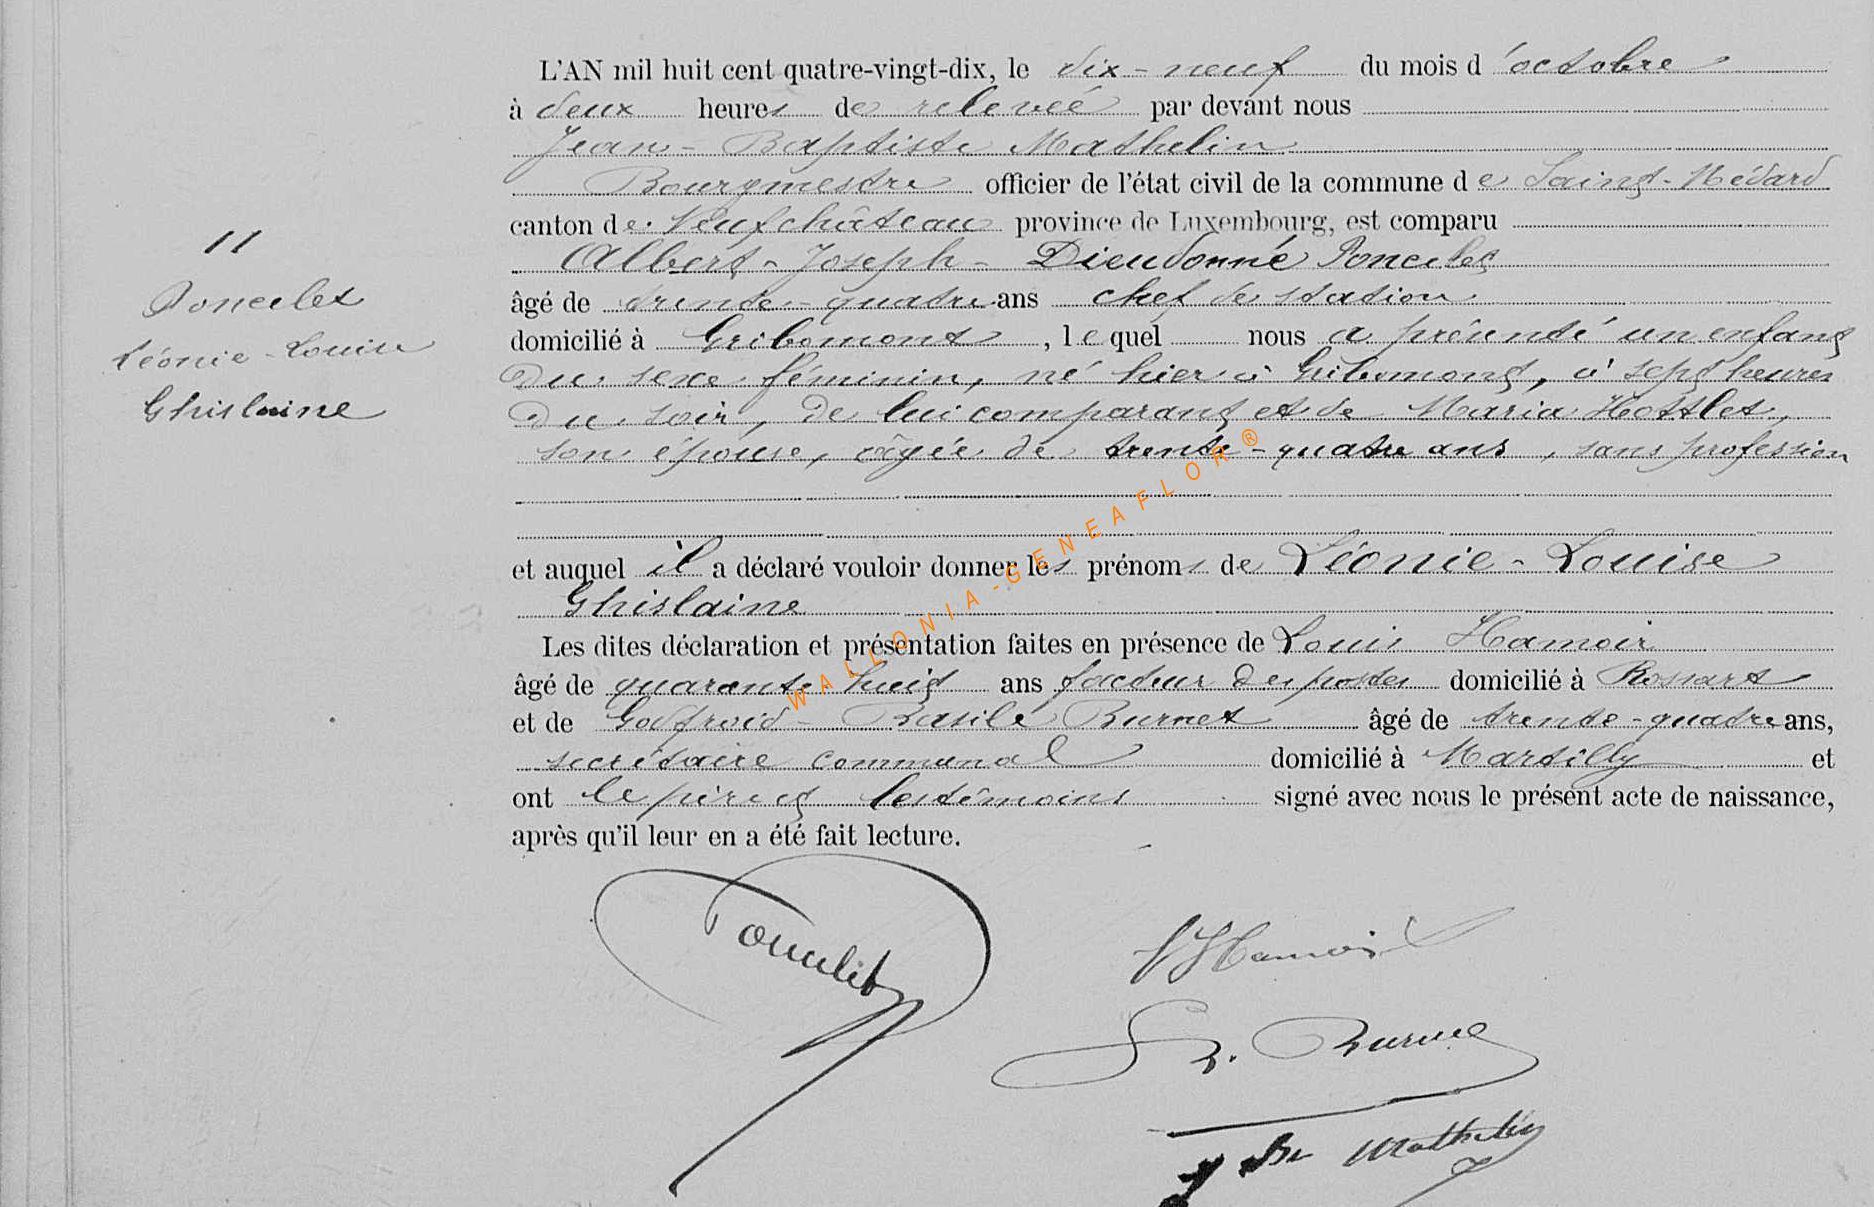 L'AN mil huit cent quatre-vingt-dix, le dix-neuf du mois d'octobre
à deux heures de relevée par devant nous
Jean-Baptiste Mathelin
Bourgmestre officier de l'état civil de la commune de Saint-Médard
canton de Neufchâteau province de Luxembourg, est comparu
Albert-Joseph-Dieudonné Poncelet
âgé de trente-quatre ans chef de station
domicilié à Gribomont, lequel nous a présenté un enfant
du sexe féminin, né hier à Gribomont, à sept heures
du soir, de lui comparant et de Maria Hottlet,
son épouse, âgée de trente-quatre ans, sans profession
et auquel il a déclaré vouloir donner les prénoms de Léonie-Louise
Ghislaine
Les dites déclaration et présentation faites en présence de Louis Hamoir
âgé de quarante huit ans facteur des postes domicilié à Rossart
et de Godfroid-Basile Burnet âgé de trente-quatre ans,
secrétaire communal domicilié à Martilly et
ont le père et les témoins signé avec nous le présent acte de naissance,
après qu'il leur en a été fait lecture.
11
Poncelet
Léonie-Louise
Ghislaine
WALLONIA-GENEAFLOR®
Poncelet
Hamoir
B. Burnet
J Bte Mathelin